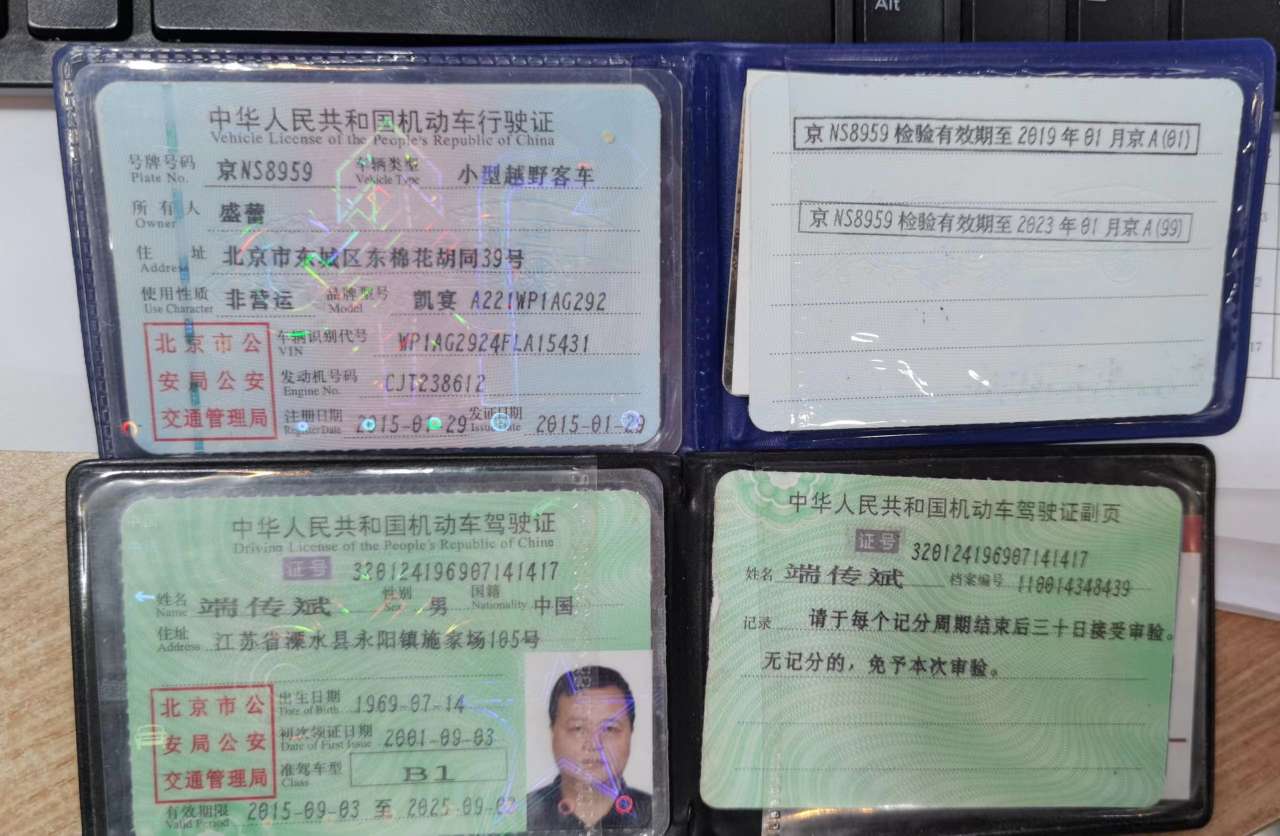 Alt
中华人民共和国机动车行驶证
Vehicle License of the People's Republic of China
号牌号码 京NS8959 车辆类型 小型越野客车
Plate No. Vehicle Type
所有人 盛蕾
Owner
住址 北京市东城区东棉花胡同39号
Address
使用性质 非营运 品牌型号 凯宴 A221WP1AG292
Use Character Model
北京市公安局公安交通管理局
车辆识别代号 WP1AG2924FLA15431
VIN
发动机号码 CJT238612
Engine No.
注册日期 2015-01-29 发证日期 2015-01-29
Register Date Issue Date
京NS8959 检验有效期至 2019年01月京A(01)
京NS8959 检验有效期至 2023年01月京A(99)
中华人民共和国机动车驾驶证
Driving License of the People's Republic of China
证号 320124196907141417
姓名 端传斌 性别 男 国籍 中国
Name Nationality
住址 江苏省溧水县永阳镇施家场105号
Address
北京市公安局公安交通管理局
出生日期 1969-07-14
Date of Birth
初次领证日期 2001-09-03
Date of First Issue
准驾车型 B1
Class
有效期限 2015-09-03 至 2025-09-03
Valid Period
中华人民共和国机动车驾驶证副页
证号 320124196907141417
姓名 端传斌 档案编号 110014348439
记录 请于每个记分周期结束后三十日接受审验。
无记分的，免予本次审验。